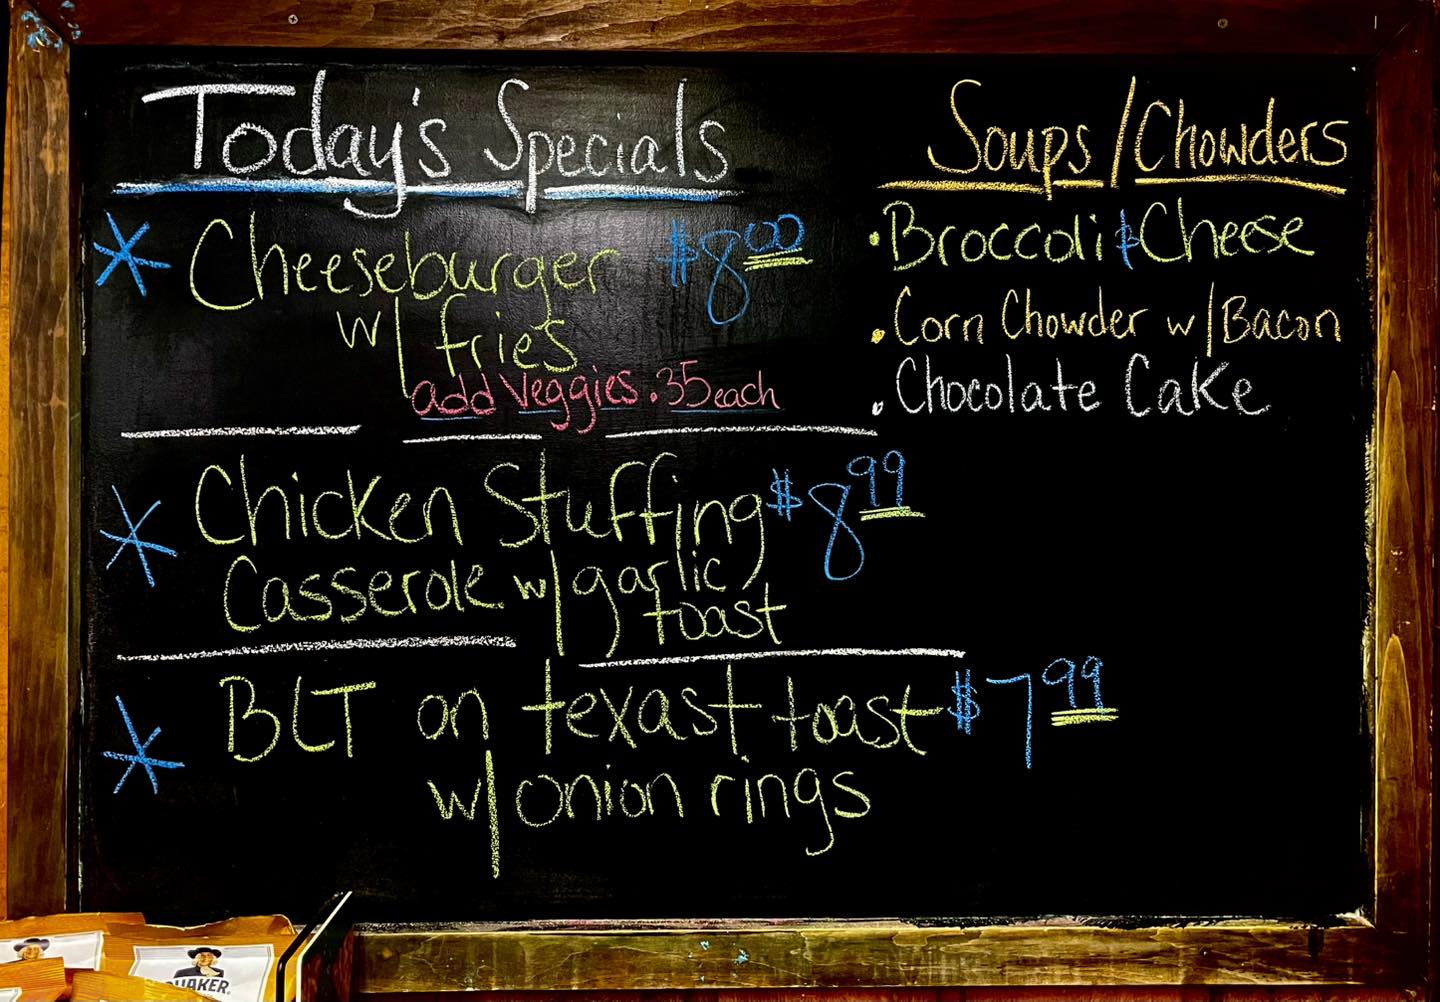 Today's Specials
* Cheeseburger $8.00
w/ fries
add veggies .35 each
* Chicken Stuffing $8.99
Casserole w/ garlic
toast
* BLT on texast toast $7.99
w/ onion rings
Soups/Chowders
• Broccoli & Cheese
• Corn Chowder w/ Bacon
• Chocolate Cake
QUAKER